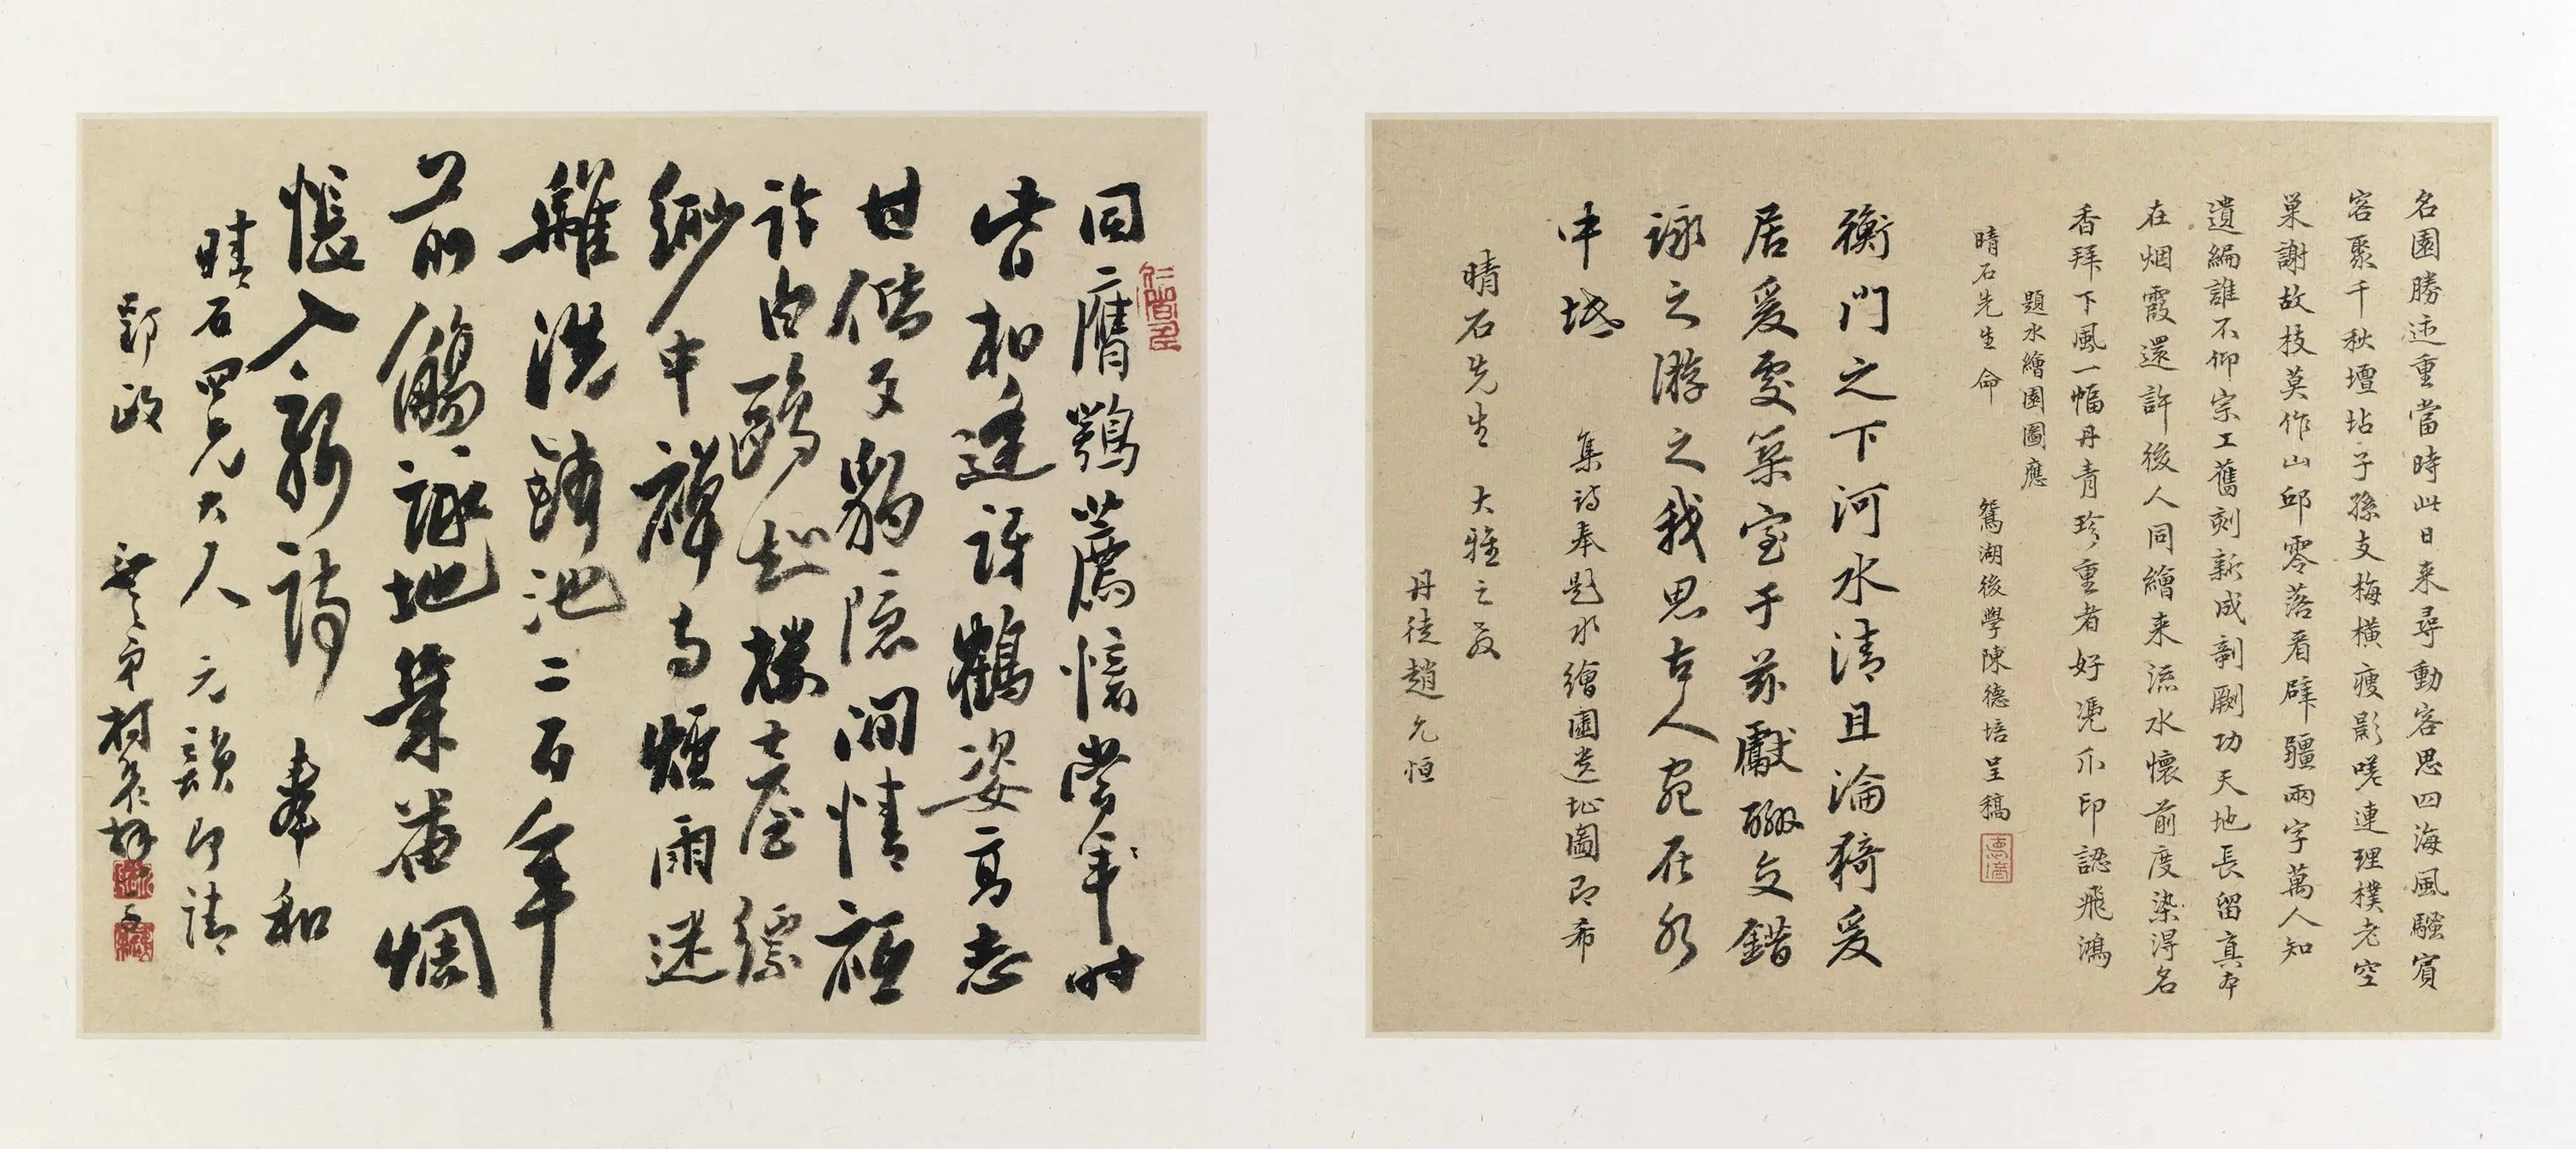 名園勝迹重當時此日来尋動客思四海風騷賓
客聚千秋壇坫子孫支梅橫瘦影嗟連理樸老空
巢謝故枝莫作山邱零落看辟疆兩字萬人知
遺編誰不仰宗工舊刻新成剞劂功天地長留真本
在烟霞還許後人同繪来流水懷前度染得名
香拜下風一幅丹青珍重看好憑爪印認飛鴻
題水繪園圖應
晴石先生命 鴛湖後學陳德培呈稿
衡門之下河水清且淪猗爰
居爰處築室于茲獻酬交錯
詠之游之我思古人宛在水
中坻 集詩奉題水繪園遗址圖即希
晴石先生 大雅之教
丹徒趙允恒
同膺鶚薦憶當年時
皆相逢訝鶴姿高志
甘偕文豹隱閒情
許白鷗知樓臺縹
緲中禪寺煙雨迷
離洗鉢池二百年
前觴詠地葉苗惆
悵入新詩 奉和
晴石四兄大人 元韻即請
郢政